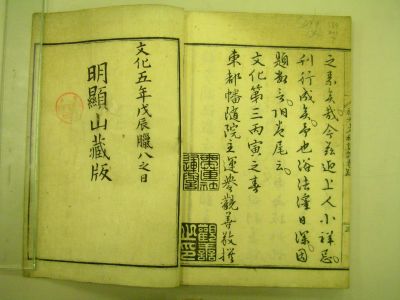 之素矣哉今茲迎上人小祥忌。
刊行成矣。予也浴法澤日深。因
題鄙言。於卷尾云。
文化第三丙寅之春
東都幡隨院主運譽觀善敬撰
觀善之印
文化五年戊辰臘八之日
明顯山藏版